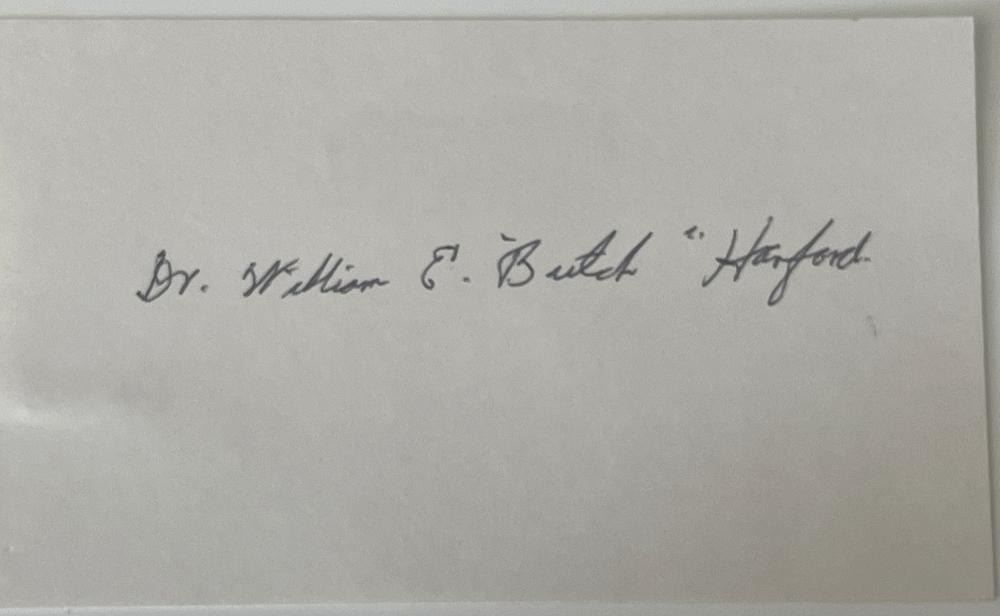 Dr. William E. "Butch" Hanford.